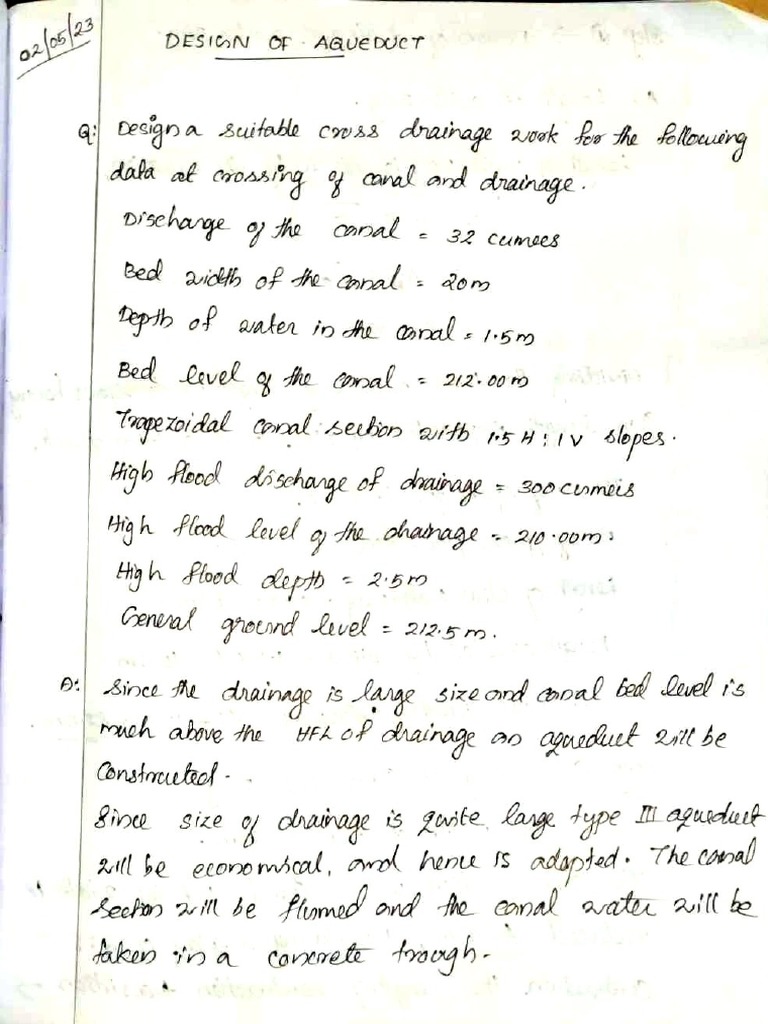 02/05/23
DESIGN OF AQUEDUCT
Q: Design a suitable cross drainage work for the following
data at crossing of canal and drainage.
Discharge of the canal = 32 cumecs
Bed width of the canal = 20m
Depth of water in the canal = 1.5m
Bed level of the canal = 212.00m
Trapezoidal canal section with 1.5H:1V slopes.
High flood discharge of drainage = 300 cumecs
High flood level of the drainage = 210.00m.
High flood depth = 2.5m
General ground level = 212.5m.
A: Since the drainage is large size and canal bed level is
much above the HFL of drainage an aqueduct will be
Constructed.
Since size of drainage is quite large type III aqueduct
will be economical, and hence is adopted. The canal
section will be flumed and the canal water will be
taken in a concrete trough.